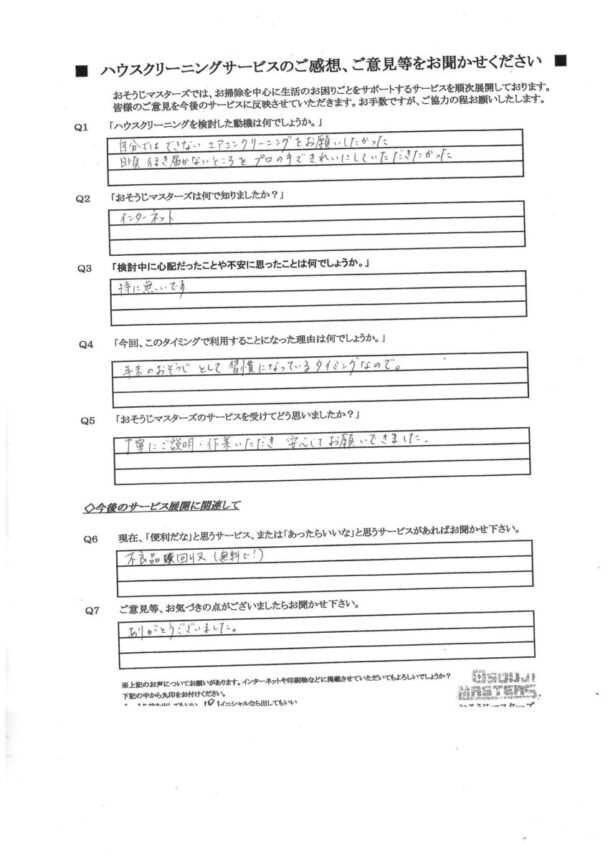 ■ ハウスクリーニングサービスのご感想、ご意見等をお聞かせください ■
おそうじマスターズでは、お掃除を中心に生活のお困りごとをサポートするサービスを順次展開しております。
皆様のご意見を今後のサービスに反映させていただきます。お手数ですが、ご協力の程お願いいたします。
Q1 「ハウスクリーニングを検討した動機は何でしょうか。」
自分では できない エアコンクリーニングをお願いしたかった
日頃 行き届かないところを プロの手できれいにしていただきたかった
Q2 「おそうじマスターズは何で知りましたか？」
インターネット
Q3 「検討中に心配だったことや不安に思ったことは何でしょうか。」
特に無いです
Q4 「今回、このタイミングで利用することになった理由は何でしょうか。」
年末のおそうじ として 習慣になっているタイミングなので。
Q5 「おそうじマスターズのサービスを受けてどう思いましたか？」
丁寧にご説明・作業いただき 安心してお願いできました。
◇今後のサービス展開に関連して
Q6 現在、「便利だな」と思うサービス、または「あったらいいな」と思うサービスがあればお聞かせ下さい。
不良品 回収 (無料で!)
Q7 ご意見等、お気づきの点がございましたらお聞かせ下さい。
ありがとうございました。
※上記のお声についてお願いがあります。インターネットや印刷物などに掲載させていただいてもよろしいでしょうか？
下記の中から丸印をお付けください。
イニシャルなら出してもいい
OSOUJI
MASTERS
おそうじマスターズ